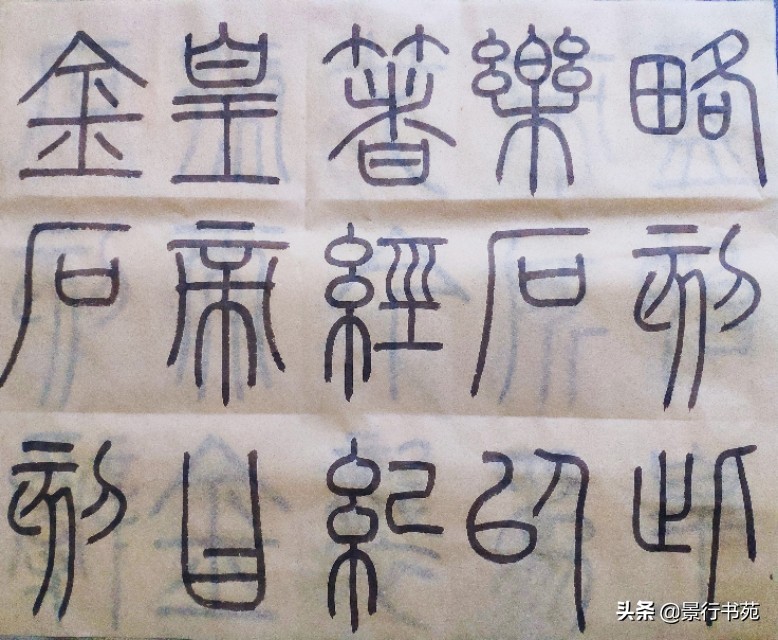 略刻此
樂石以
著經紀
皇帝曰
金石刻
头条 @景行书苑